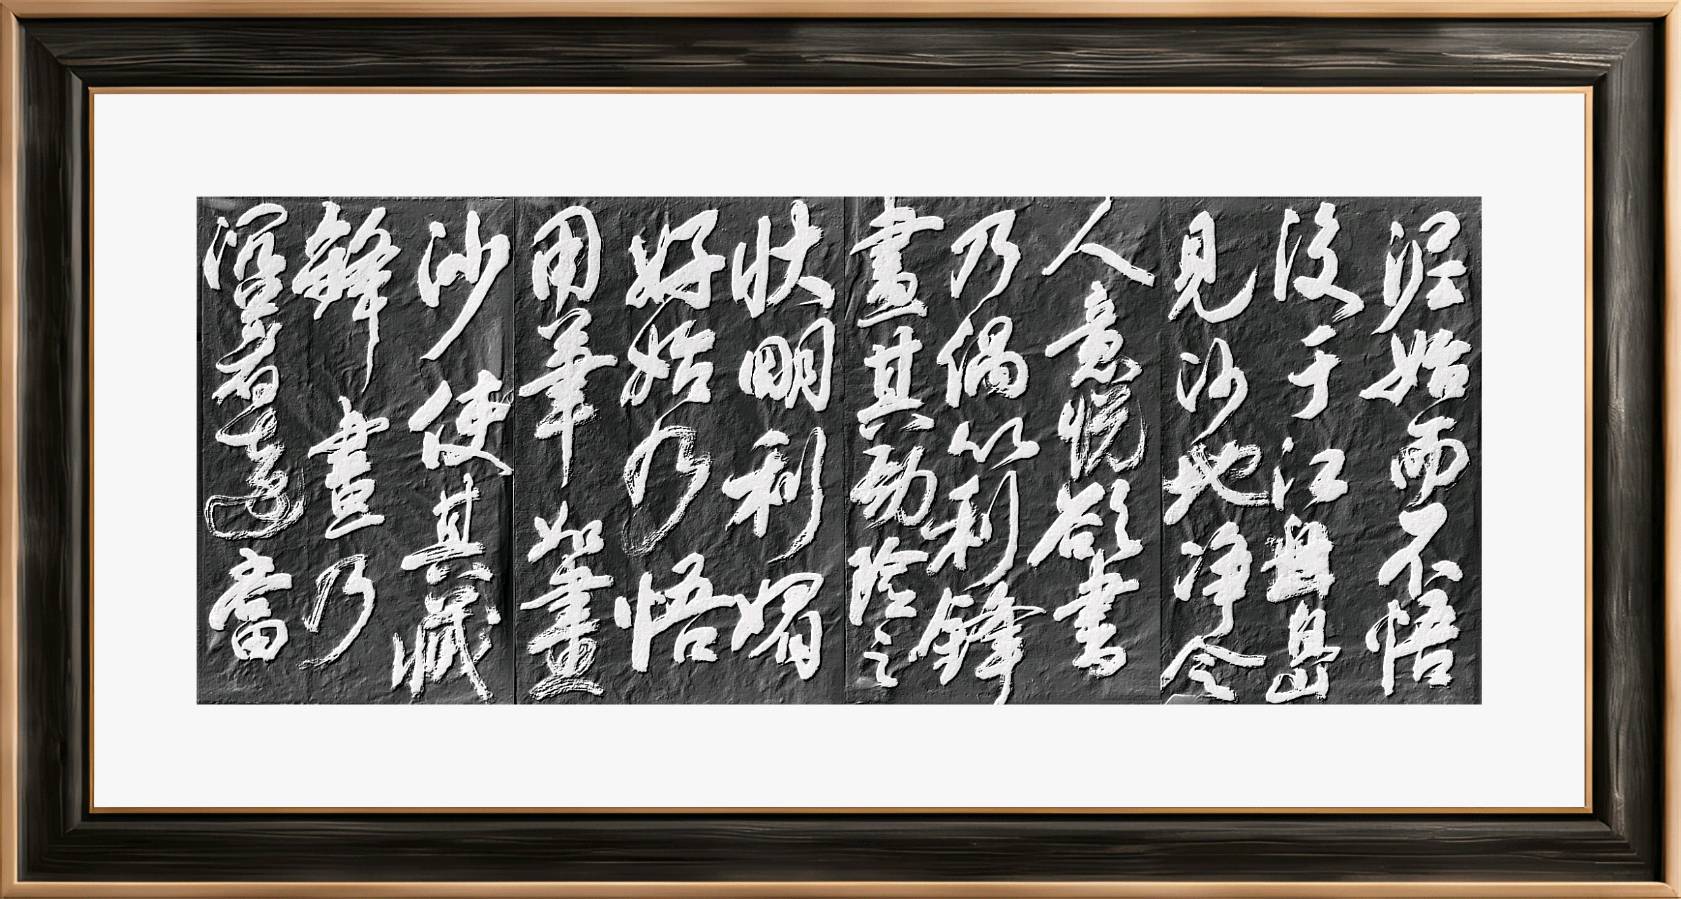 泥始而不悟
後于江與島
見沙地淨令
人意悅欲書
乃偶以利鋒
畫其勁險之
狀明利媚
好始乃悟
用筆如畫
沙使其藏
鋒畫乃
著當